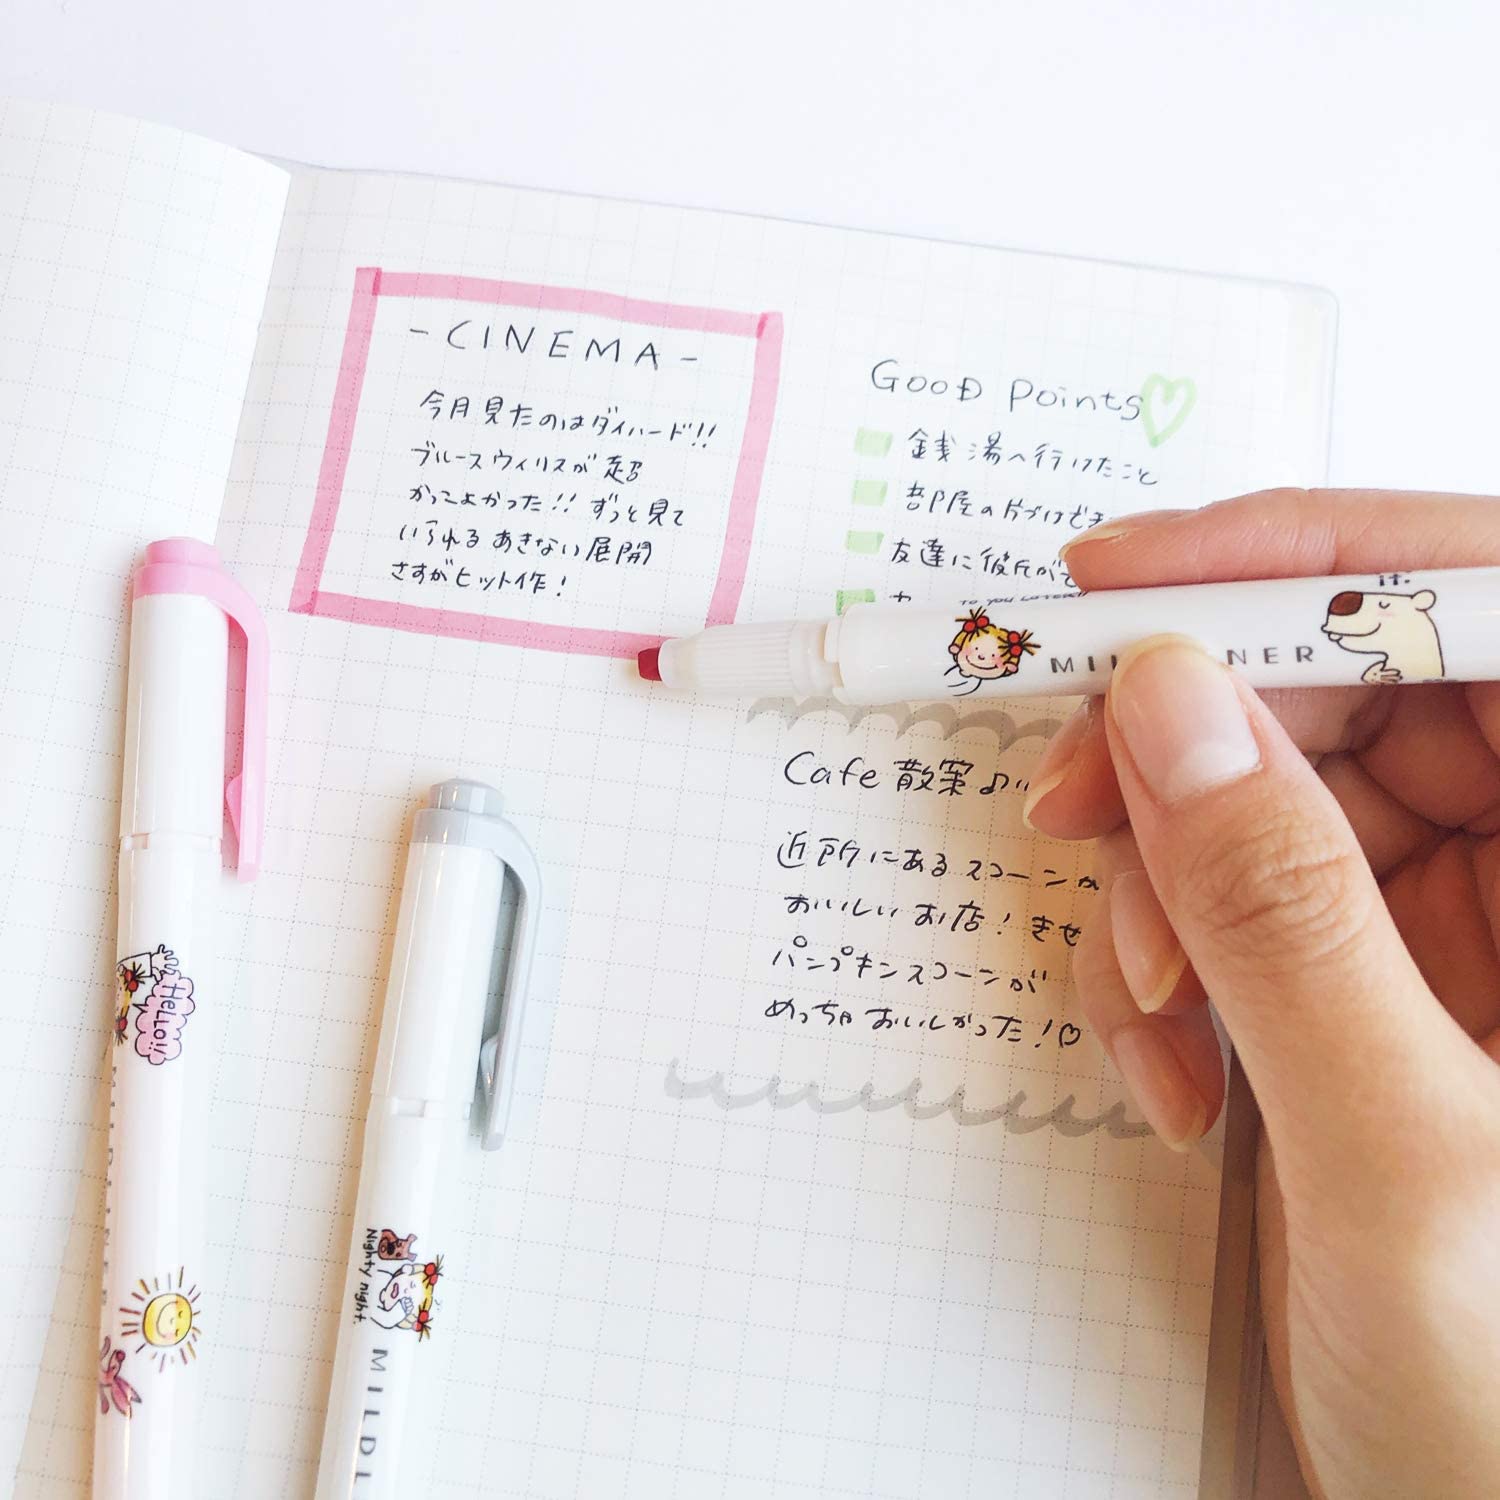 - CINEMA -
今月見たのはダイハード!!
ブルースウィリスが超
かっこよかった!! ずっと見て
いられる あきない展開
さすがヒット作!
GOOD Points♡
銭湯へ行けたこと
部屋の片づけでき
友達に彼氏がで
Cafe 散策♪
近所にあるスコーンが
おいしいお店! きせ
パンプキンスコーンが
めっちゃおいしかった!♡
it.
MIL NER
HELLO!!
MILDLINER
Nighty night.
MILDL